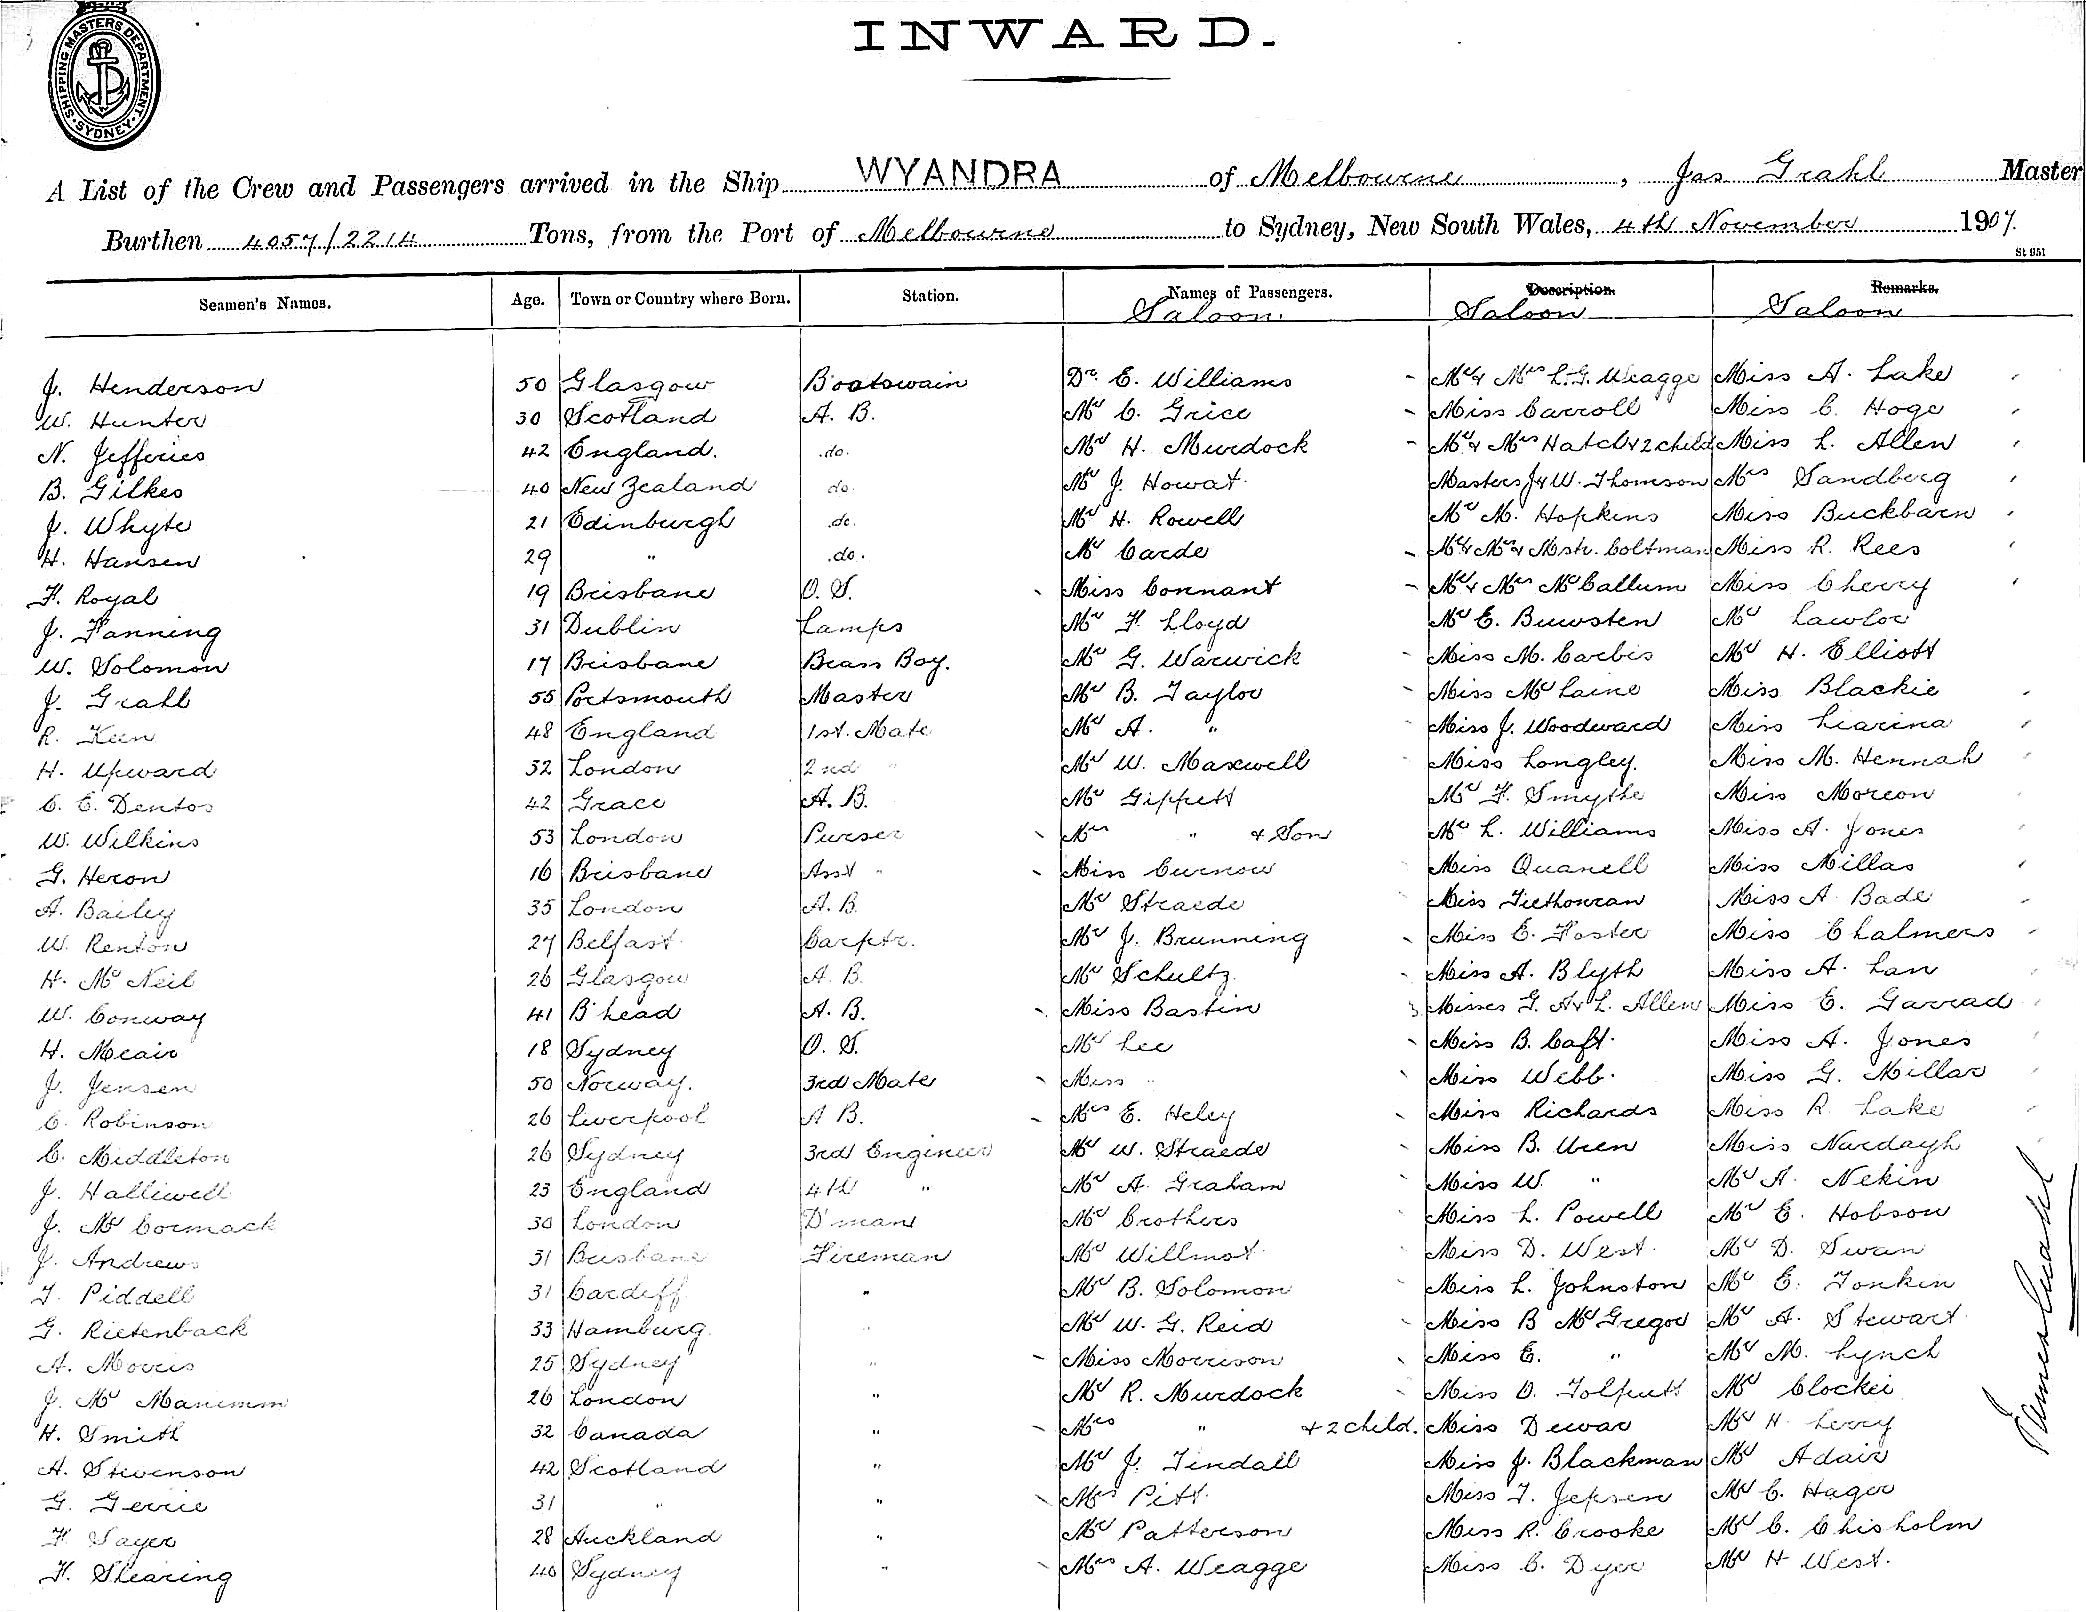 SHIPPING MASTERS DEPARTMENT · SYDNEY ·
INWARD.
A List of the Crew and Passengers arrived in the Ship WYANDRA of Melbourne, Jas Grahl Master
Burthen 4057/2214 Tons, from the Port of Melbourne to Sydney, New South Wales, 4th November 1907.
St 951
Seamen's Names. Age. Town or Country where Born. Station. Names of Passengers. Description. Remarks.
Saloon. Saloon Saloon
J. Henderson 50 Glasgow Boatswain Dr. E. Williams Mr & Mrs L.G. Weagge Miss A. Lake
W. Hunter 30 Scotland A. B. Mr C. Grice Miss Carroll Miss C. Hoge
N. Jefferies 42 England. do. Mr H. Murdock Mr & Mrs Hatch & 2 child Miss L. Allen
B. Gilkes 40 New Zealand do. Mr J. Howat. Masters J & W. Thomson Mrs Sandberg
J. Whyte 21 Edinburgh do. Mr H. Rowell Mr M. Hopkins Miss Buckbarn
H. Hansen 29 " do. Mr Carde Mr & Mrs & Mstr. Coltman Miss R. Rees
F. Royal 19 Brisbane O. S. Miss Connant Mr & Mrs McCallum Miss Cherry
J. Fanning 31 Dublin Lamps Mr F. Lloyd Mr E. Buwsten Mr Lawlor
W. Solomon 17 Brisbane Brass Boy. Mr G. Warwick Miss M. Corbis Mr H. Elliott
J. Grahl 55 Portsmouth Master Mr B. Taylor Miss McLaine Miss Blackie
R. Keen 48 England 1st. Mate Mr A. " Miss J. Woodward Miss Liarina
H. Upward 32 London 2nd " Mr W. Maxwell Miss Longley. Miss M. Hennah
C. E. Dentos 42 Grace A. B. Mr Gippett Mr F. Smythe Miss Morcon
W. Wilkins 53 London Purser Mrs " & Son Mr L. Williams Miss A. Jones
G. Heron 16 Brisbane Asst " Miss Curnow Miss Quanell Miss Millas
A. Bailey 35 London A. B. Mr Straede Miss Miss A. Bade
W. Renton 27 Belfast. Carptr. Mr J. Brunning Miss E. Foster Miss Chalmers
H. McNeil 26 Glasgow A. B. Mr Schultz. Miss A. Blyth Miss A. Lan
W. Conway 41 B'head A. B. Miss Bastin Misses G. A & L. Allen Miss E. Garrad
H. Mcair 18 Sydney O. S. Mr Lee Miss B. Caft. Miss A. Jones
J. Jensen 50 Norway. 3rd Mate Miss " Miss Webb. Miss G. Millar
C. Robinson 26 Liverpool A B. Mrs E. Heley Miss Richards Miss R. Lake
C. Middleton 26 Sydney 3rd Engineer Mr W. Straede Miss B. Uren Miss Nurdayh
J. Halliwell 23 England 4th " Mr A. Graham Miss W. " Mr A. Nekin
J. McCormack 30 London D'man Mr Crothers Miss L. Powell Mr E. Hobson
J. Andrews 31 Brisbane Fireman Mr Willmot. Miss D. West. Mr D. Swan
T. Piddell 31 Cardiff " Mr B. Solomon Miss L. Johnston Mr E. Tonkin
G. Rietenback 33 Hamburg. " Mr W. G. Reid Miss B McGregor Mr A. Stewart
A. Morris 25 Sydney " Miss Morrison Miss E. " Mr M. Lynch
J. McManimm 26 London " Mr R. Murdock Miss O. Tolputt Mr Clockei
H. Smith 32 Canada " Mrs " & 2 child. Miss Dewar Mr H. Lerry
A. Stevenson 42 Scotland " Mr J. Tindall Miss J. Blackman Mr Adair
G. Gerrie 31 " " Mrs Pitt. Miss T. Jepsen Mr C. Hager
F. Sayer 28 Auckland " Mr Patterson Miss R. Crooke Mr C. Chisholm
F. Shearing 40 Sydney " Mrs A. Weagge Miss C. Dyer Mr H West.